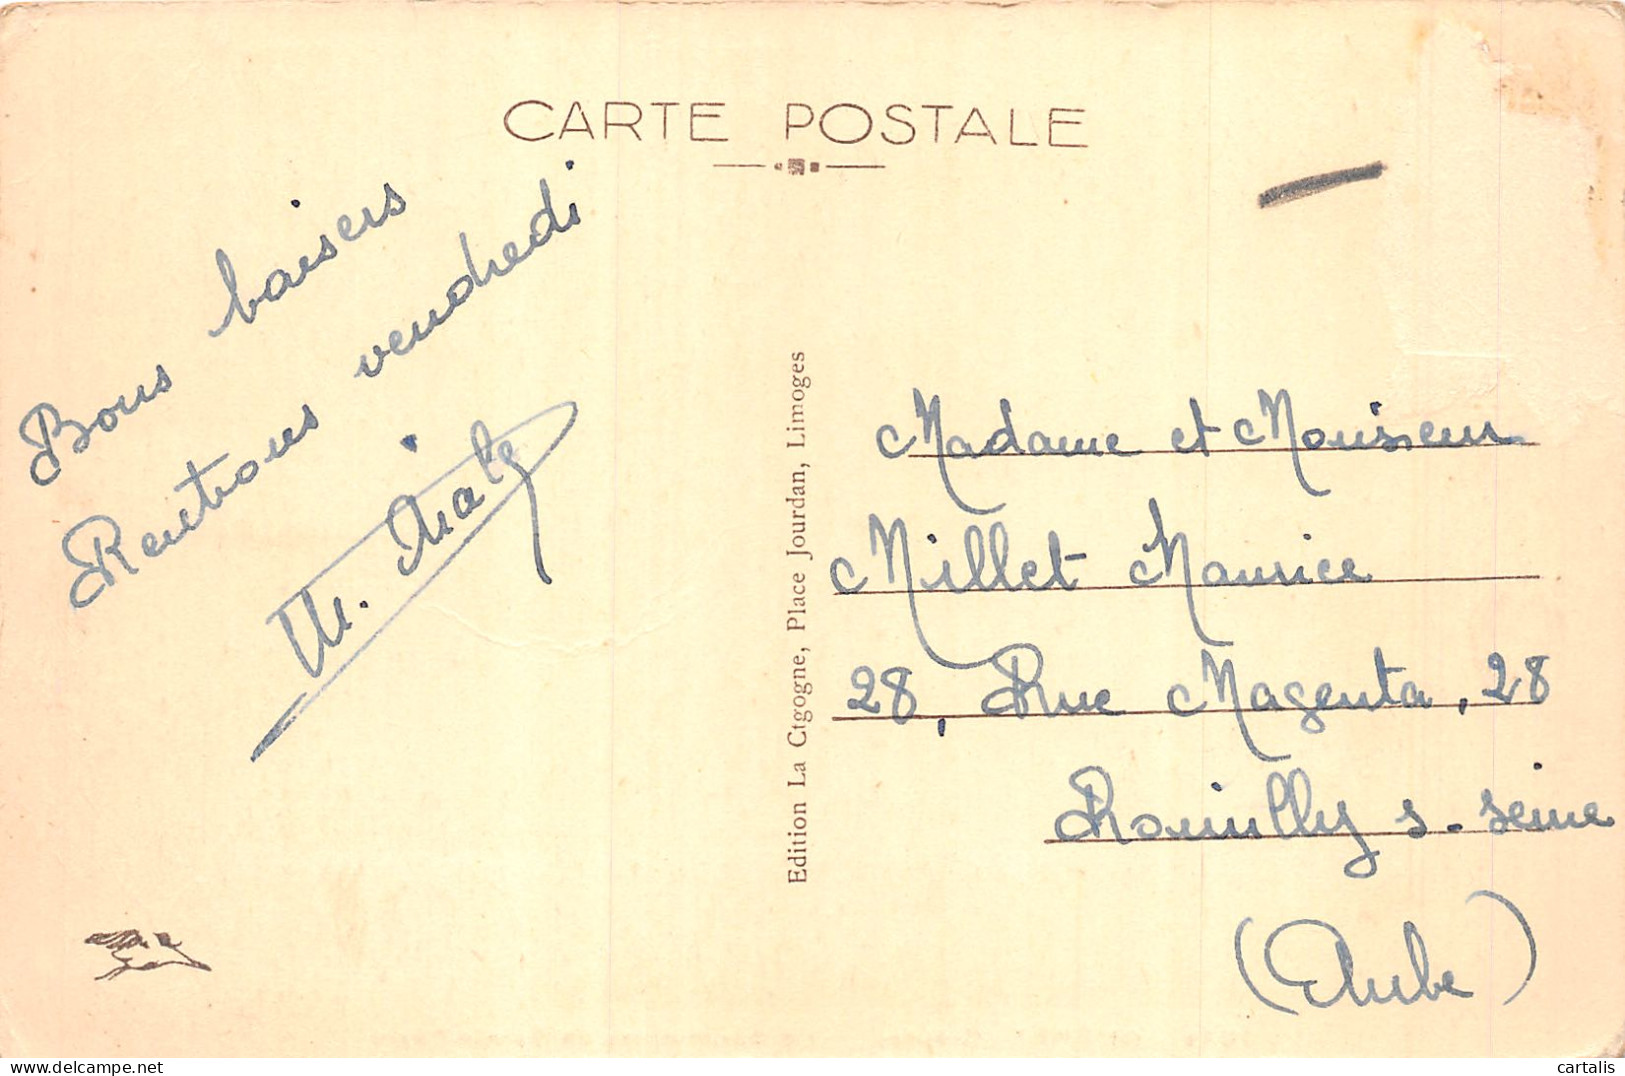 CARTE POSTALE
Bons baisers
Rentrons vendredi
M.
Edition La Ctgogne, Place Jourdan, Limoges
Madame et Monsieur
Millet Maurice
28, Rue Magenta, 28
Romilly s. Seine
(Aube)
delcampe.net
cartalis